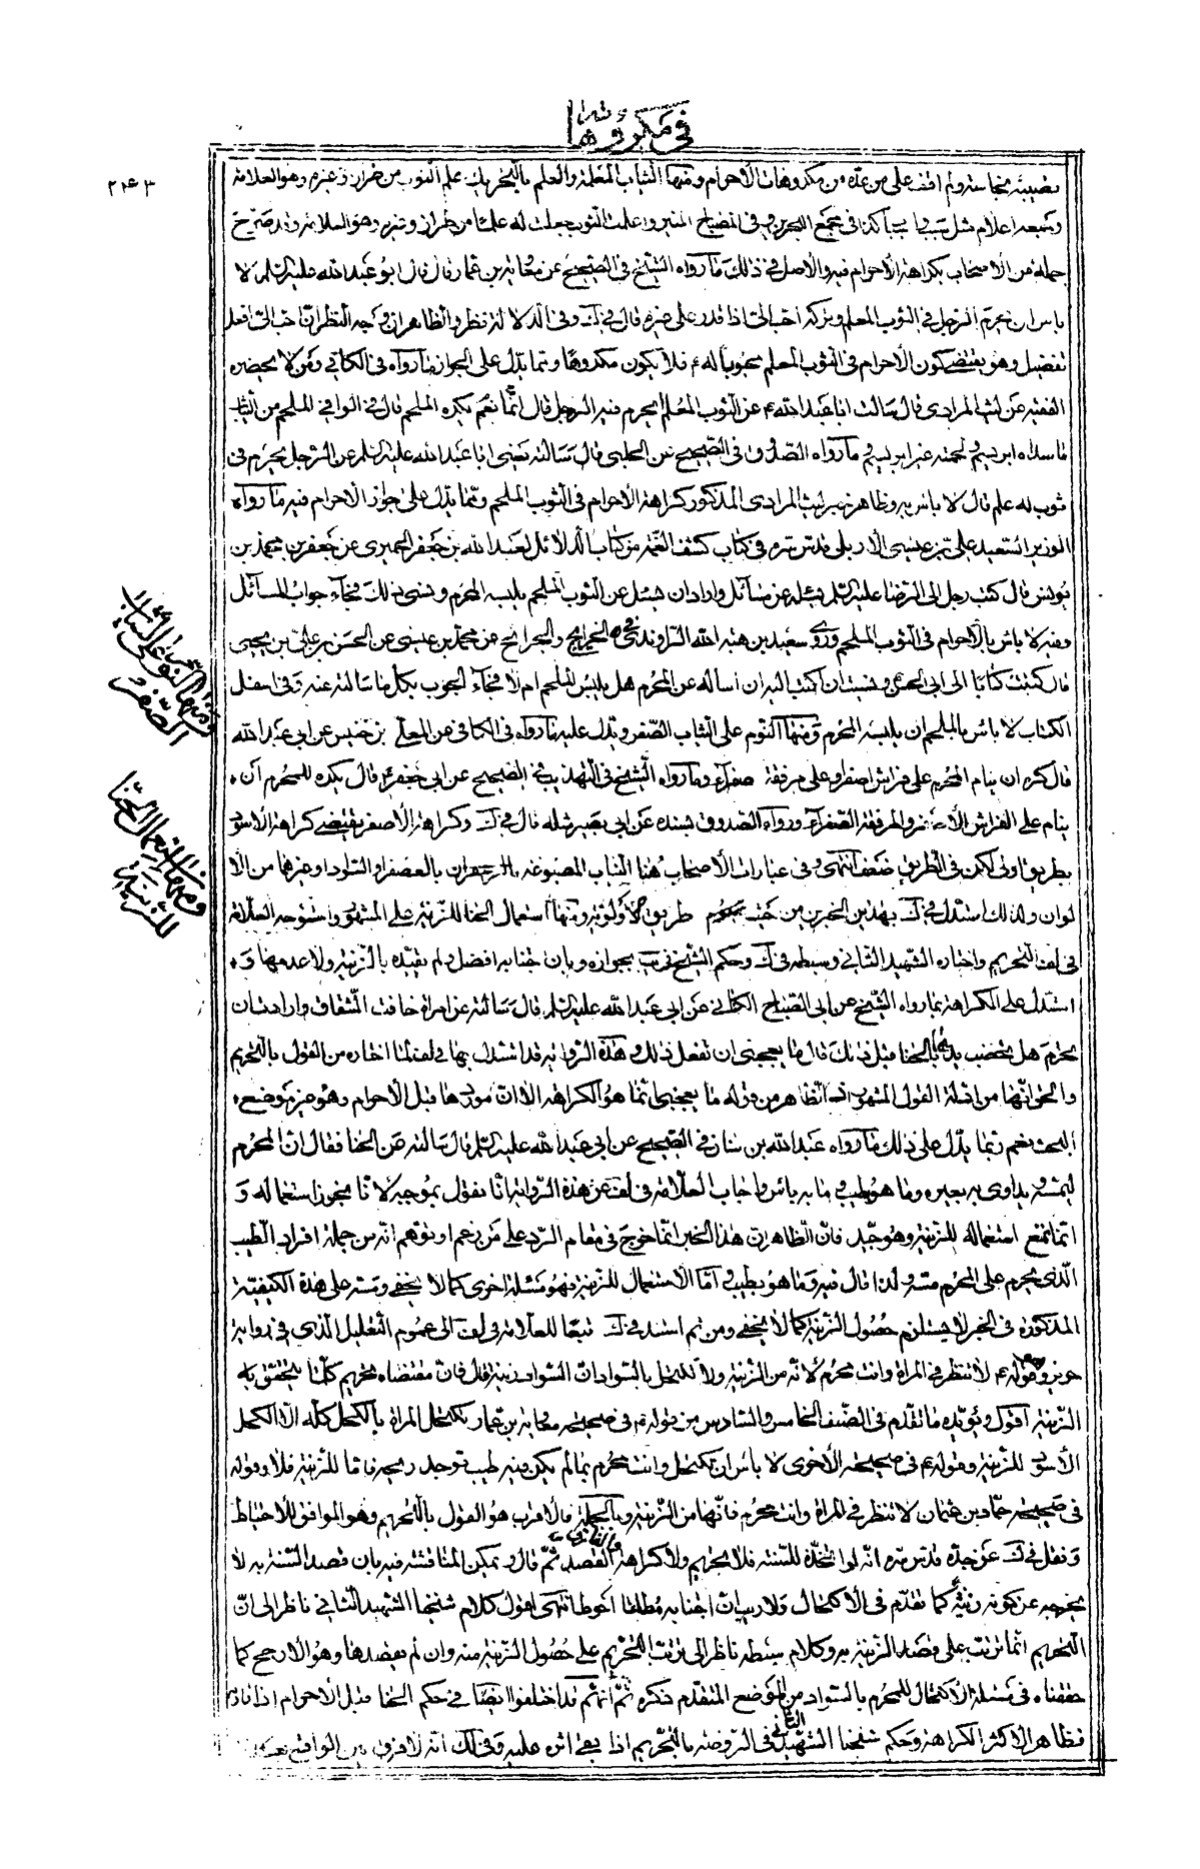 في مكروهاته
۲۴۳
يصيبه نجاسة ولم اقف على من عده من مكروهات الأحرام ومنها الثياب المعلمة والعلم بالتحريك علم الثوب من طراز وغيره وهو العلامة
وجمعه اعلام مثل سبب واسباب كذا في مجمع البحرين وفي المصباح المنير واعلمت الثوب جعلت له علما من طراز وغيره وهو العلامة وقد صرح
جملة من الأصحاب بكراهة الأحرام فيه والاصل في ذلك ما رواه الشيخ في الصحيح عن معوية بن عمار قال قال ابو عبد الله عليه السلم لا
باس ان يحرم الرجل في الثوب المعلم وتركه احب الي اذا قدر على غيره قال في ك وفي الدلالة نظر والظاهر ان وجه النظر ان احب الي افعل
تفضيل وهو يقتضي كون الأحرام في الثوب المعلم محبوبا له ع فلا يكون مكروها ومما يدل على الجواز ما رواه في الكافي ومن لا يحضره
الفقيه عن ليث المرادي قال سالت ابا عبد الله ع عن الثوب المعلم ايحرم فيه الرجل قال نعم انما يكره الملحم قال في الوافي الملحم من الثياب
ما سداه ابريسم ولحمته غير ابريسم وما رواه الصدوق في الصحيح عن الحلبي قال سالته يعني ابا عبد الله عليه السلم عن الرجل يحرم في
ثوب له علم قال لا باس به وظاهر خبر ليث المرادي المذكور كراهة الأحرام في الثوب الملحم ومما يدل على جواز الأحرام فيه ما رواه
الوزير السعيد علي بن عيسى الاربلي قدس سره في كتاب كشف الغمة من كتاب الدلائل لعبد الله بن جعفر الحميري عن جعفر بن محمد بن
يونس قال كتب رجل الى الرضا عليه السلم يسئله عن مسائل واراد ان يسئل عن الثوب الملحم يلبسه المحرم ونسي ذلك فجاء جواب المسائل
وفيه لا باس بالأحرام في الثوب الملحم وروى سعيد بن هبة الله الراوندي في الخرايج والجرائح عن محمد بن عيسى عن الحسن بن علي بن يحيى
قال كتبت كتابا الى ابي الحسن ع ونسيت ان اكتب اليه ان اساله عن المحرم هل يلبس الملحم ام لا فجاء الجوب بكل ما سالته عنه وفي اسفل
الكتاب لا باس بالملحم ان يلبسه المحرم ومنها النوم على الثياب الصفر ويدل عليه ما رواه في الكافي عن المعلى بن خنيس عن ابي عبد الله
قال كره ان ينام المحرم على فراش اصفر او على مرفقة صفراء وما رواه الشيخ في التهذيب في الصحيح عن ابي جعفر ع قال يكره للمحرم ان
ينام على الفراش الأصفر والمرفقة الصفراء ورواه الصدوق بسنده عن ابي بصير مثله قال في ك وكراهة الأصفر يقتضي كراهة الأسود
بطريق اولى لكن في الطريق ضعف انتهى وفي عبارات الأصحاب هنا الثياب المصبوغة بالزعفران بالعصفر او السواد او غيرها من الا
لوان ولذلك استدل في ك بهذين الخبرين من حيث مفهوم طريق الأولوية ومنها استعمال الحنا للزينة على المشهور واستوجه العلامة
في لف التحريم واختاره الشهيد الثاني وسبطه في ك وحكم الشيخ في يب بجوازه وبان اجتنابه افضل ولم يقيده بالزينة ولا عدمها و
استدل على الكراهة بما رواه الشيخ عن ابي الصباح الكناني عن ابي عبد الله عليه السلم قال سالته عن امراة خافت الشقاق وارادت ان
تحرم هل تخضب يدها بالحنا قبل ذلك قال ما يعجبني ان تفعل ذلك وهذه الرواية قد استدل بها في لف لما اختاره من القول بالتحريم
والحق انها من ادلة القول المشهور اذ الظاهر من قوله ما يعجبني انما هو الكراهة الا ان موردها قبل الأحرام وهو غير موضع
البحث نعم ربما يدل على ذلك ما رواه عبد الله بن سنان في الصحيح عن ابي عبد الله عليه السلم قال سالته عن الحنا فقال ان المحرم
ليمسه ويداوى به بعيره وما هو بطيب وما به باس واجاب العلامة في لف عن هذه الرواية انا نقول بموجبه لانا نجوز استعماله و
انما نمنع استعماله للزينة وهو جيد فان الظاهر ان هذا الخبر انما خرج في مقام الرد على من زعم او توهم انه من جملة افراد الطيب
الذي يحرم على المحرم مسه ولذا قال فيه وما هو بطيب واما الاستعمال للزينة فهو مسئلة اخرى كما لا يخفى ومسه على هذه الكيفية
المذكورة في الخبر لا يستلزم حصول الزينة كما لا يخفى ومن ثم استند في ك تبعا للعلامة في لف الى عموم التعليل الذي في رواية
حريز وهو قوله ع لا تنظر في المراة وانت محرم لانه من الزينة ولا تكتحل بالسواد ان السواد زينة قال فان مقتضاه تحريم كلما يتحقق به
الزينة اقول ويؤيده ما تقدم في الصنف الخامس والسادس من قوله ع في صحيحة معوية بن عمار تكتحل المراة بالكحل كله الا الكحل
الأسود للزينة وقوله ع في صحيحته الأخرى لا باس ان تكتحل وانت محرم بما لم يكن فيه طيب توجد ريحه فاما للزينة فلا وقوله
في صحيحة حماد بن عثمان لا تنظر في المراة وانت محرم فانها من الزينة وبالجملة فالأقرب هو القول بالتحريم وهو الموافق للأحتياط
ونقل في ك عن جده قدس سره انه لو اتخذه للسنة فلا تحريم ولا كراهة والفارق القصد ثم قال ويمكن المناقشة فيه بان قصد السنة به لا
يخرجه عن كونه زينة كما تقدم في الأكتحال ولا ريب ان اجتنابه مطلقا احوط انتهى اقول كلام شيخنا الشهيد الثاني ناظر الى ان
التحريم انما ترتب على قصد الزينة به وكلام سبطه ناظر الى ترتب التحريم على حصول الزينة منه وان لم يقصدها وهو الأرجح كما
حققناه في مسئلة الأكتحال للمحرم بالسواد من الموضع المتقدم ذكره ثم انهم قد اختلفوا ايضا في حكم الحنا قبل الأحرام اذا قارنه
فظاهر الاكثر الكراهة وحكم شيخنا الشهيد الثاني في الروضة بالتحريم اذا بقي اثره عليه وفي لك انه لا فرق بين الواقع
ومنها النوم على الثياب
الصفر
ومنها استعمال الحنا
للزينة